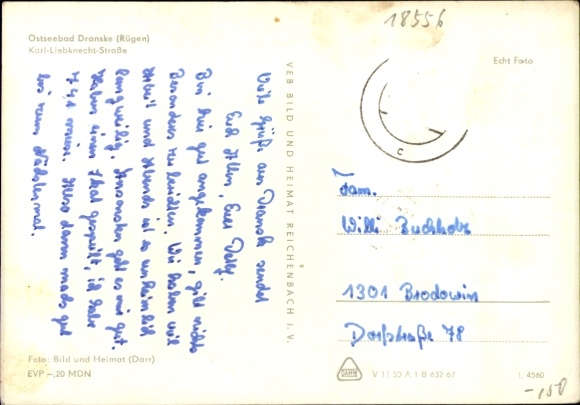 18556
Ostseebad Dranske (Rügen)
Karl-Liebknecht-Straße
Echt Foto
Viele Grüße aus Dransk sendet
Euch Allen, Euer
Bin hier gut angekommen, gibt nichts
Besonderes zu berichten. Wir haben viel
Arbeit und Abends ist es unheimlich
langweilig. Ansonsten geht es mir gut.
Haben einen Skat gespielt, ich habe
7,41 miese. Also dann machs gut
bis zum Nächstenmal.
VEB BILD UND HEIMAT REICHENBACH i. V.
Fam.
Willi Buchholz
1301 Brodowin
Dorfstraße 78
Foto: Bild und Heimat (Darr)
EVP –,20 MDN
V 11 55 A 1 B 632 67
L 4560
-,150